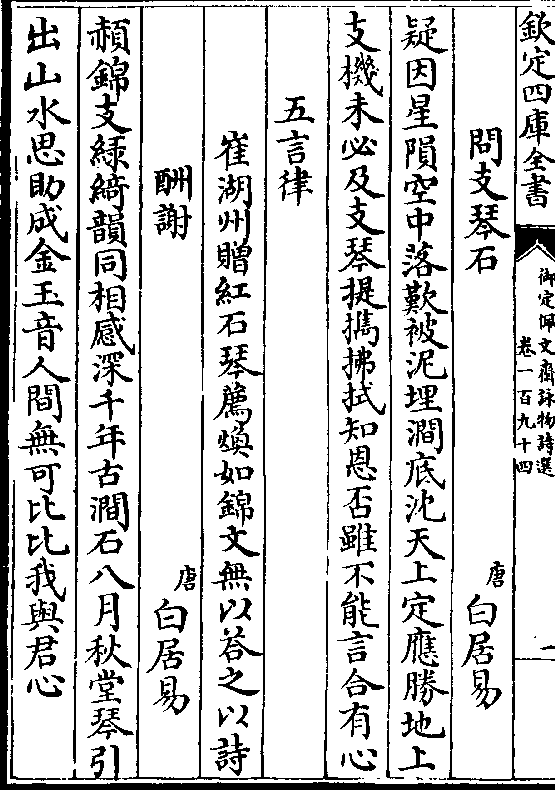 欽定四庫全書
御定佩文齋詠物詩選
卷一百九十四
一
問支琴石
唐
白居易
疑因星隕空中落歎被泥埋澗底沈天上定應勝地上
支機未必及支琴提攜拂拭知恩否雖不能言合有心
五言律
崔湖州贈紅石琴薦煥如錦文無以荅之以詩
酬謝
唐
白居易
赬錦支緑綺韻同相感深千年古澗石八月秋堂琴引
出山水思助成金玉音人間無可比比我與君心